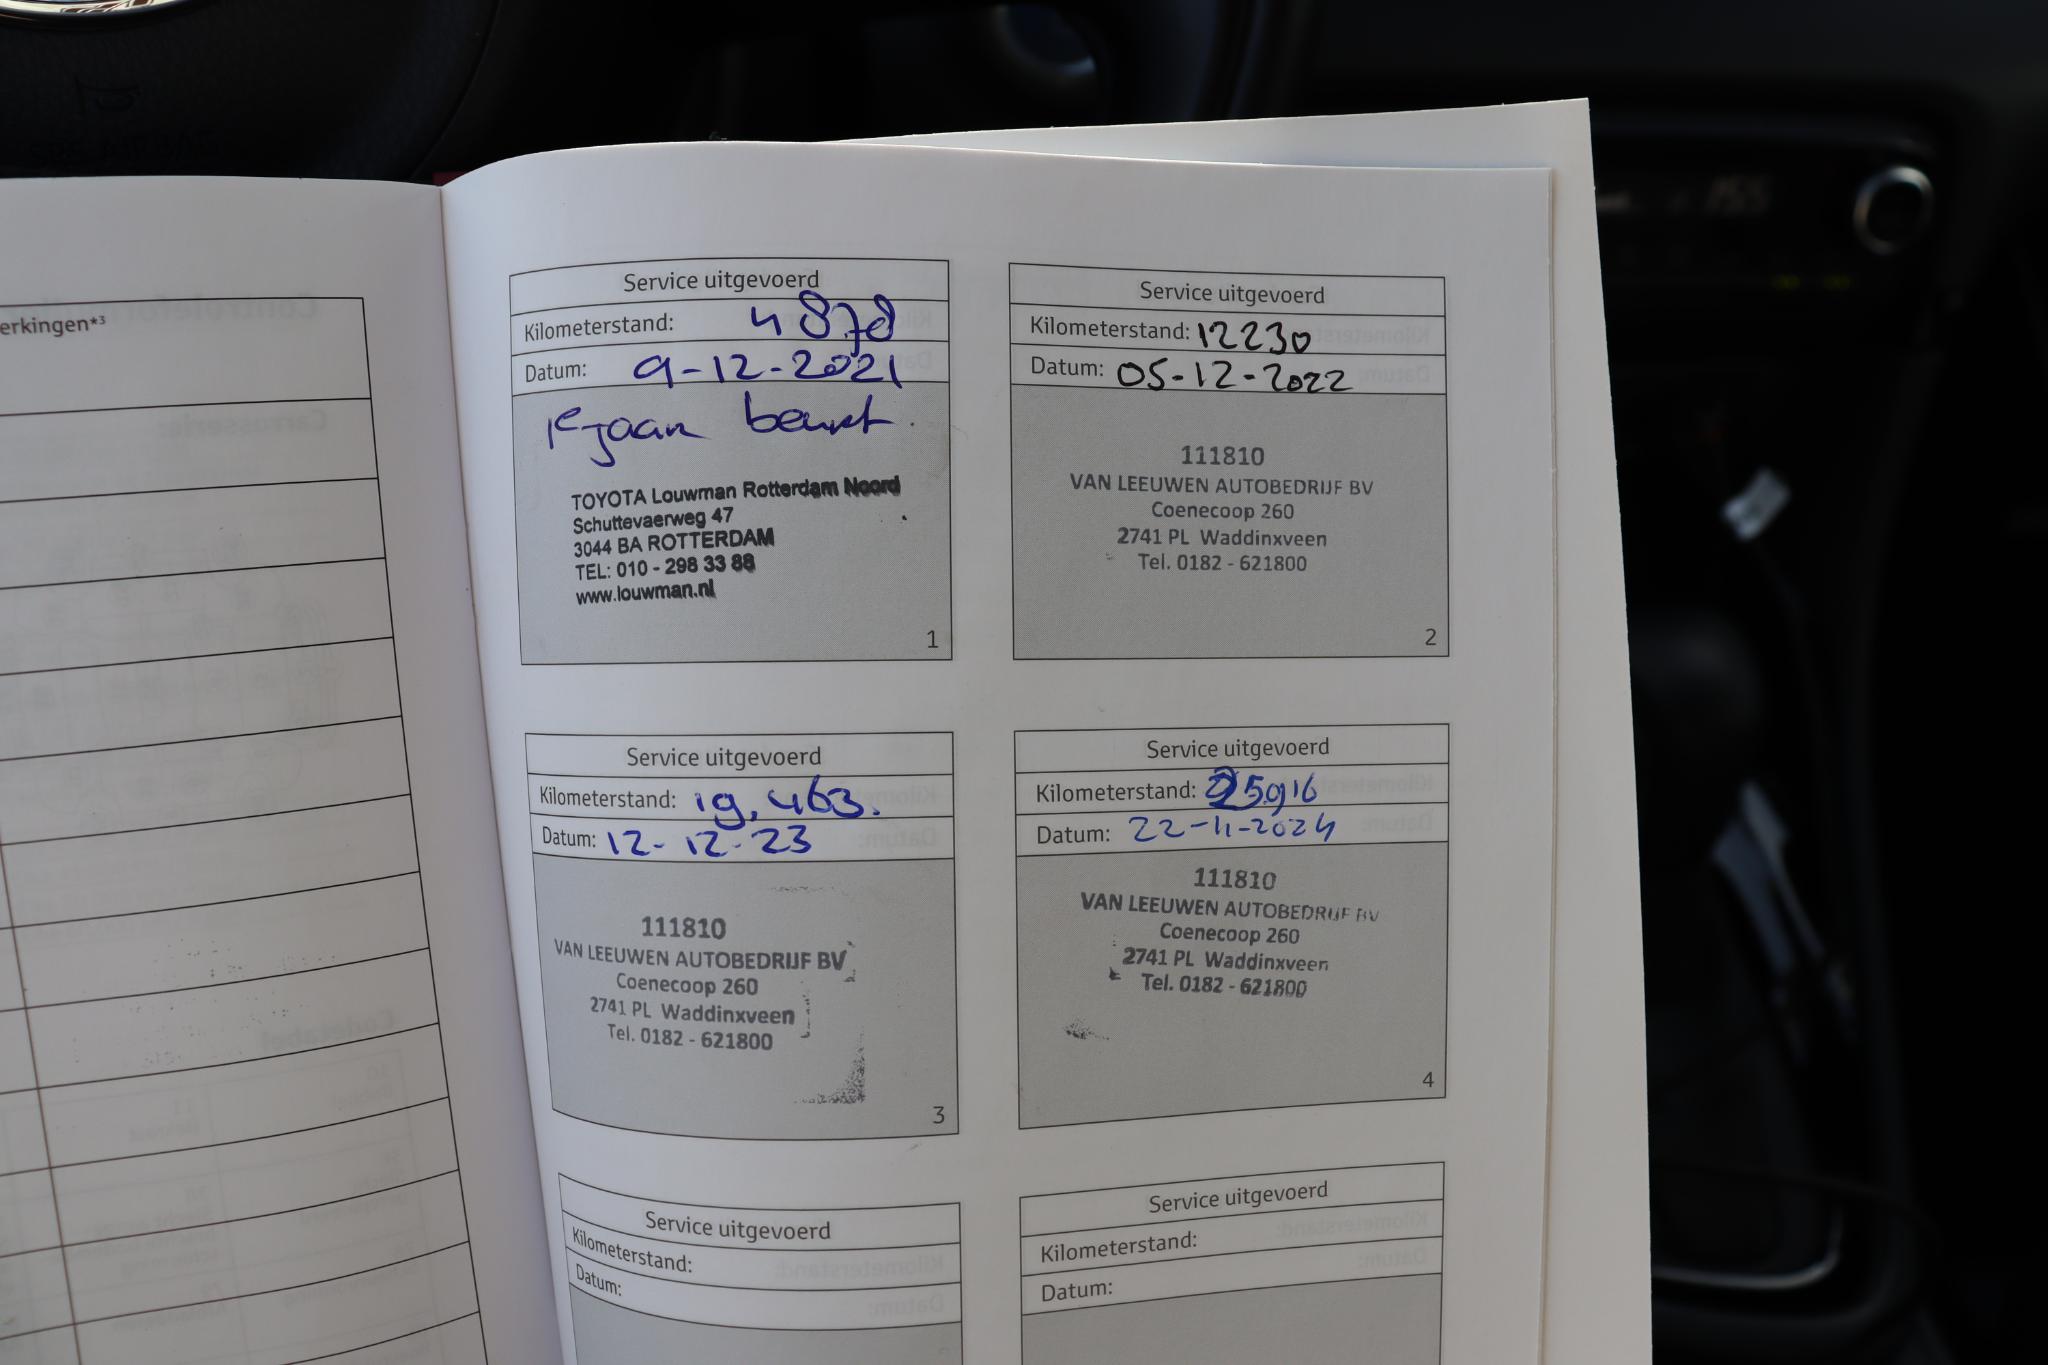 erkingen*³
Service uitgevoerd
Kilometerstand: 4878
Datum: 9-12-2021
1e jaar beurt.
TOYOTA Louwman Rotterdam Noord
Schuttevaerweg 47
3044 BA ROTTERDAM
TEL: 010 - 298 33 88
www.louwman.nl
1
Service uitgevoerd
Kilometerstand: 12230
Datum: 05-12-2022
111810
VAN LEEUWEN AUTOBEDRIJF BV
Coenecoop 260
2741 PL Waddinxveen
Tel. 0182 - 621800
2
Service uitgevoerd
Kilometerstand: 19.463.
Datum: 12-12-23
111810
VAN LEEUWEN AUTOBEDRIJF BV
Coenecoop 260
2741 PL Waddinxveen
Tel. 0182 - 621800
3
Service uitgevoerd
Kilometerstand: 25916
Datum: 22-11-2024
111810
VAN LEEUWEN AUTOBEDRIJF BV
Coenecoop 260
2741 PL Waddinxveen
Tel. 0182 - 621800
4
Service uitgevoerd
Kilometerstand:
Datum:
Service uitgevoerd
Kilometerstand:
Datum: